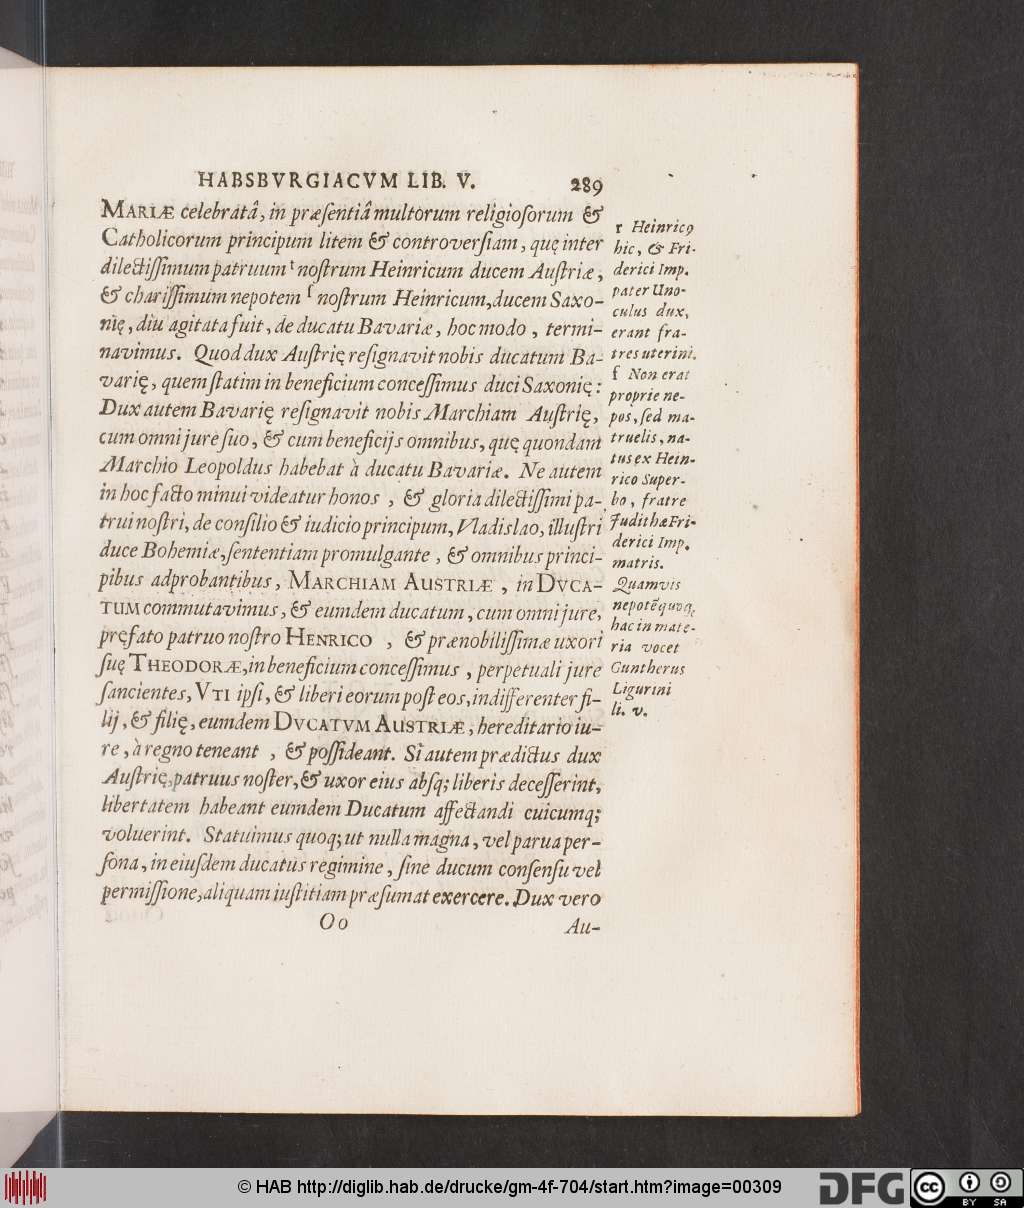 HABSBVRGIACVM LIB. V. 289
MARIÆ celebratâ, in præſentiâ multorum religioſorum &
Catholicorum principum litem & controverſiam, quę inter
dilectiſſimum patruum r noſtrum Heinricum ducem Auſtriæ,
& chariſſimum nepotem ſ noſtrum Heinricum, ducem Saxo-
nię, diu agitata fuit, de ducatu Bavariæ, hoc modo, termi-
navimus. Quod dux Auſtrię reſignavit nobis ducatum Ba-
varię, quem ſtatim in beneficium conceſſimus duci Saxonię:
Dux autem Bavarię reſignavit nobis Marchiam Auſtrię,
cum omni jure ſuo, & cum beneficijs omnibus, quę quondam
Marchio Leopoldus habebat à ducatu Bavariæ. Ne autem
in hoc facto minui videatur honos, & gloria dilectiſſimi pa-
trui noſtri, de conſilio & iudicio principum, Vladislao, illuſtri
duce Bohemiæ, ſententiam promulgante, & omnibus princi-
pibus adprobantibus, MARCHIAM AUSTRIÆ, in DVCA-
TUM commutavimus, & eumdem ducatum, cum omni jure,
pręfato patruo noſtro HENRICO, & prænobiliſſimæ uxori
ſuę THEODORÆ, in beneficium conceſſimus, perpetuali jure
ſancientes, VTI ipſi, & liberi eorum poſt eos, indifferenter fi-
lij, & filię, eumdem DVCATVM AUSTRIÆ, hereditario iu-
re, à regno teneant, & poſſideant. Si autem prædictus dux
Auſtrię, patruus noſter, & uxor eius abſq; liberis deceſſerint,
libertatem habeant eumdem Ducatum affectandi cuicumq;
voluerint. Statuimus quoq; ut nulla magna, vel parua per-
ſona, in eiuſdem ducatus regimine, ſine ducum conſenſu vel
permiſſione, aliquam iuſtitiam præſumat exercere. Dux vero
Oo Au-
r Heinricꝯ
hic, & Fri-
derici Imp.
pater Uno-
culus dux,
erant fra-
tres uterini.
ſ Non erat
proprie ne-
pos, ſed ma-
truelis, na-
tus ex Hein-
rico Super-
bo, fratre
Judithæ Fri-
derici Imp.
matris.
Quamvis
nepotē quoq,
hac in mate-
ria vocet
Guntherus
Ligurini
li. v.
© HAB http://diglib.hab.de/drucke/gm-4f-704/start.htm?image=00309
DFG
cc BY SA